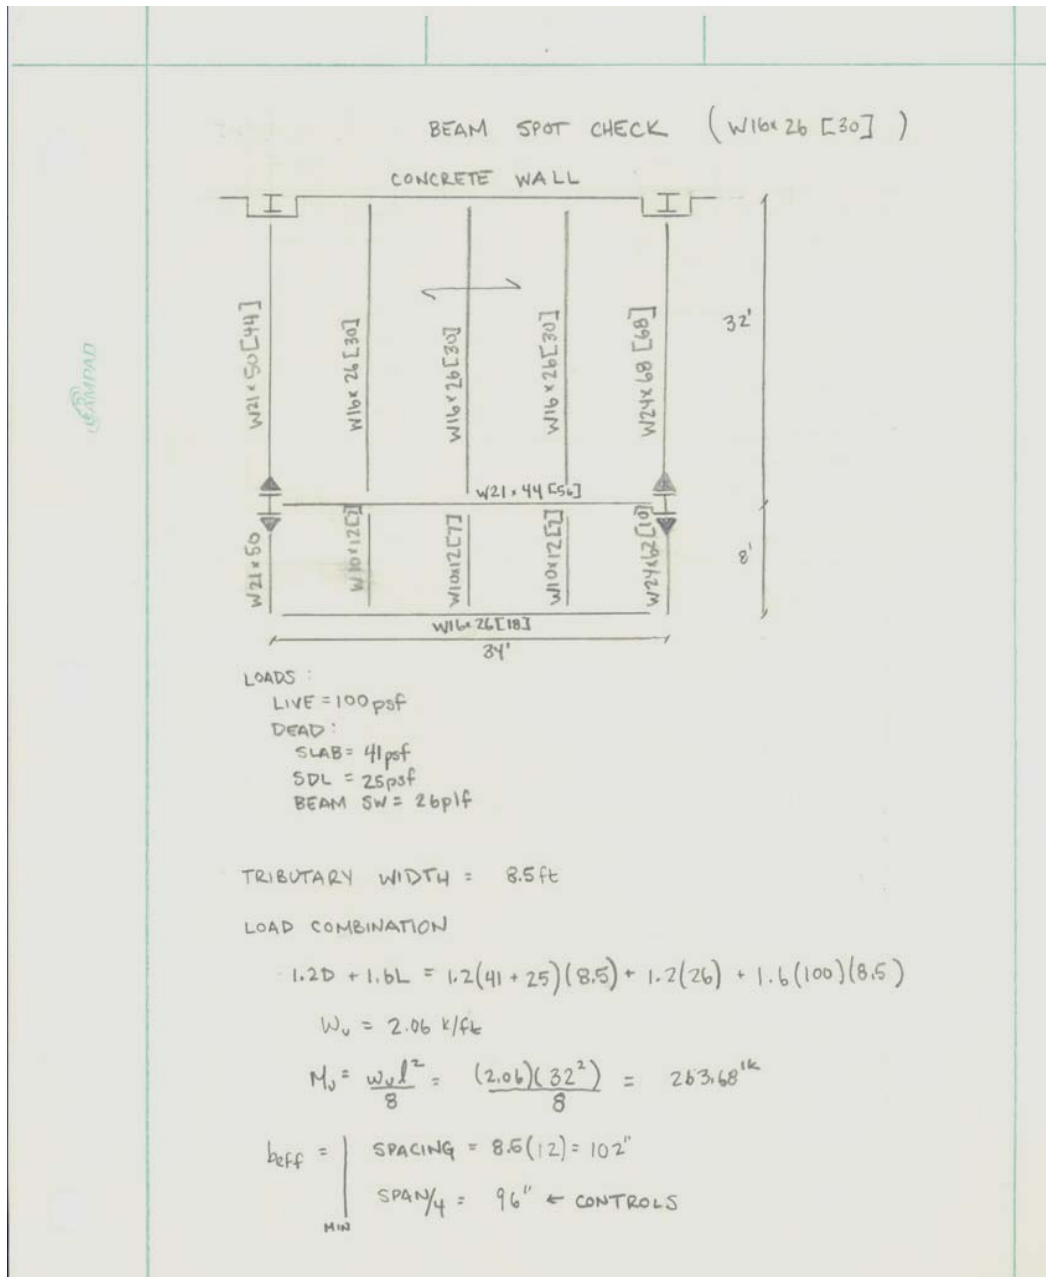 BEAM SPOT CHECK (W16x26 [30])
CONCRETE WALL
W21x50[44]
W16x26[30]
W16x26[30]
W16x26[30]
W24x68 [68]
32'
W21x44 [56]
W21x50
W10x12[7]
W10x12[7]
W10x12[7]
W24x62[10]
8'
W16x26[18]
34'
LOADS:
LIVE = 100psf
DEAD:
SLAB = 41psf
SDL = 25psf
BEAM SW = 26plf
TRIBUTARY WIDTH = 8.5ft
LOAD COMBINATION
1.2D + 1.6L = 1.2(41 + 25)(8.5) + 1.2(26) + 1.6(100)(8.5)
Wu = 2.06 k/ft
Mu = wul²/8 = (2.06)(32²)/8 = 263.68'k
beff = | SPACING = 8.5(12) = 102"
SPAN/4 = 96" ← CONTROLS
MIN
AMPAD